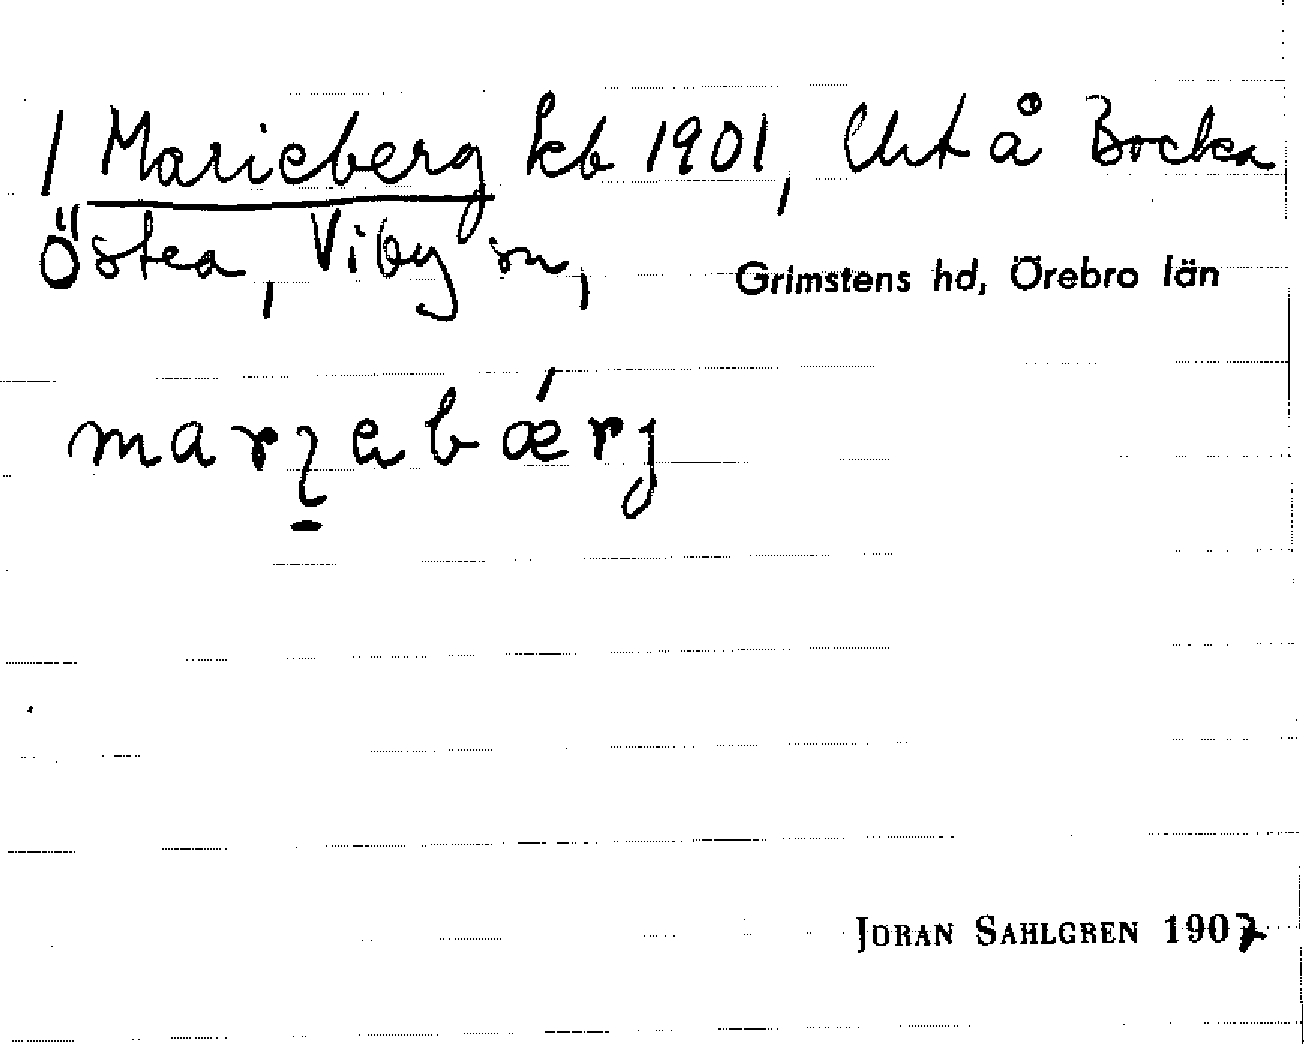 / Marieberg kb 1901, Uht å Bocka
Östra, Viby sn, Grimstens hd, Örebro län
JÖRAN SAHLGREN 1907